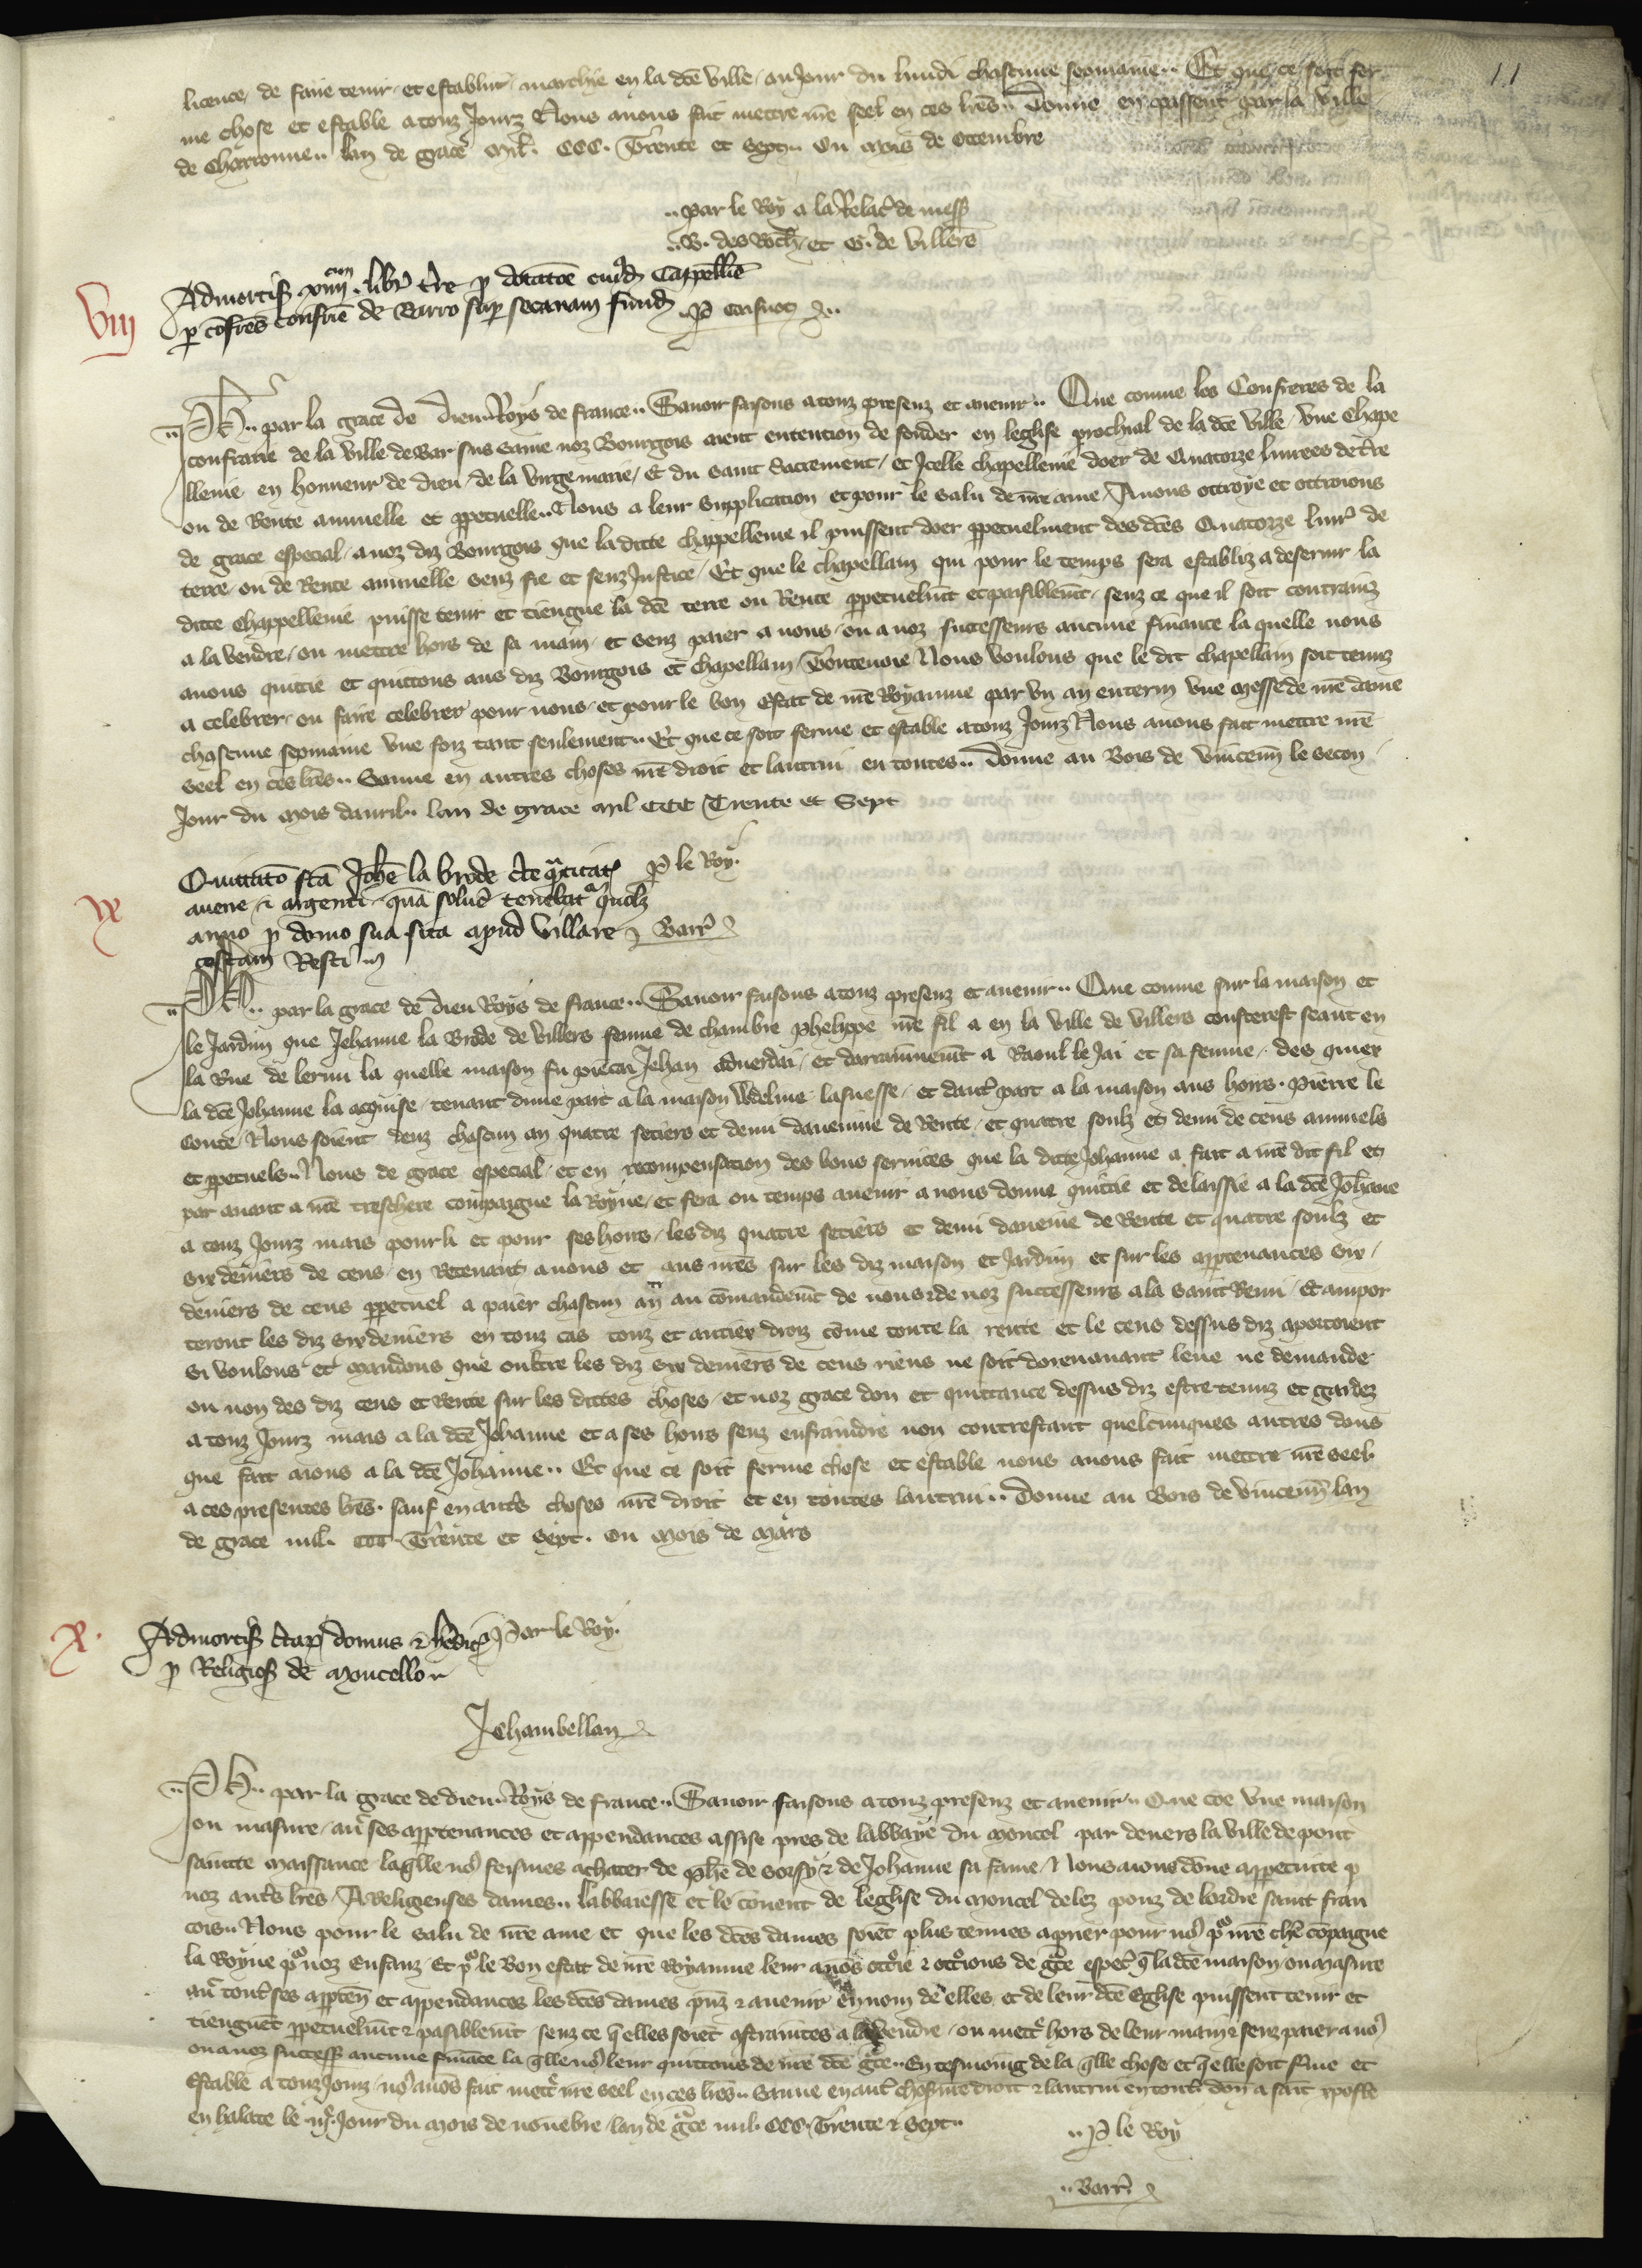 11
licence, de faire tenir et establir marchie en la dcē ville au Jour du lundi chascune sepmaine.. Et que ce soit fer
me chose et estable a touz Jourz Nous auons fait mettre nrē seel en ces lrēs.. Donne en passent par la ville
de Charronne.. lan de grace Mil. CCC. Trente et Sept.. ou mois de
..par le Roy a la Relac̄ de mess
..et G. de Villers
Admortis xiiii libr̄ tr̄e p dotacōe cuiusd Cappellīe
p cōfres confrīe de Barro sup secanam fund
VIII
..PH.. par la grace de Dieu.. Roys de france.. Sauoir faisons a touz presenz et auenir.. Que comme les Confreres de la
confrarie de la ville de Bar sus Saine noz Bourgois aient entention de fonder en leglise prochial de la dcē ville vne Chape
llenie en honneur de dieu de la virge marie, et du saint Sacrement, et Icelle chapellenie doer de Quatorze liurees de tr̄re
ou de Rente annuelle et ppetuelle.. Nous a leur supplication et pour le salu de nrē ame Auons ottroye et ottroions
de grace especial, a noz diz Bourgois que la dicte chappellenie il puissent doer ppetuelment des dcēs Quatorze liur̄ de
terre ou de Rente annuelle senz fie et senz Justice, Et que le chapellain qui pour le temps sera establiz a deseruir la
dicte Chappellenie puisse tenir et tiengne la dcē terre ou Rente ppetuelm̄t et paisiblem̄t, senz ce que il soit contrainz
a la vendre, ou mettre hors de sa main, et senz paier a nous, ou a noz successeurs aucune finance la quelle nous
auons quittie et quittons aus diz Bourgois et chapellain, Toutenoie Nous voulons que le dit chapellain soit tenuz
a celebrer, ou faire celebrer pour nous, et pour le bon estat de nrē Royaume par vn an enterin vne messe de nrē dame
chascune sepmaine vne foiz tant seulement.. Et que ce soit ferme et estable a touz Jourz Nous auons fait mettre nrē
seel en ces lrēs.. Sauue en autres choses nrē droit et lautrui en toutes.. Donne au Bois de Vincenn̄ le secon
Jour du mois dauril.. lan de grace mil CCC Trente et Sept
P le Roy.
Quittatō fcā Johē la brode de q̄titate
auene et argenti quā soluē tenebat quolz
anno p domo sua sita apud Villare
costam Resti
Barr̄
IX
..PH.. par la grace de dieu Roys de france.. Sauoir faisons a touz presenz et auenir.. Que comme sur la maison et
le Jardin que Jehanne la Brode de Villers femme de chambre Phelippe nrē fil a en la ville de Villers consterest seant en
la Rue de lerim la quelle maison fu pieca Jehan aduerdai, et darrainnem̄t a Raoul le Jai et sa femme, des quiex
la dcē Johanne la acquise, tenant dune part a la maison lasnesse, et daut̄ part a la maison aus hoirs Pierre le
Conte, Nous soient deuz chascun an quatre setiers et demi dauenne de Rente, et quatre soulz et demi de cens annuels
et ppetuels.. Nous de grace especial, et en recompensation des bons seruices que la dicte Johanne a fait a nrē dit fil et
par auant a nrē treschere compaigne la Royne, et fera ou temps auenir a nous donne quittie et delaissie a la dcē Johāne
a touz Jourz mais pour li et pour ses hoirs, les diz quatre setiers et demi dauenne de Rente et quatre soulz et
six deniers de cens, en Retenant a nous et aus nrēs sur les diz maison et Jardin et sur les apptenances six
deniers de cens ppetuel a paier chascun an au cōmandem̄t de nous et de noz successeurs a la saint Remi, et aumpor
teront les diz six deniers en touz cas touz et autiex droiz cōme toute la rente et le cens dessus diz aportoient
Si voulons et mandons que oultre les diz six deniers de cens riens ne soit dorenauant leue ne demande
ou non des diz cens et Rente sur les dictes choses, et noz grace don et quittance dessus diz estre tenuz et gardez
a touz Jourz mais a la dcē Jehanne et a ses hoirs senz enfraindre non contrestant quelcunques autres dons
que fait aions a la dcē Johanne.. Et que ce soit ferme chose et estable nous auons fait mettre nrē seel
a ces presentes lrēs. sauf en aut̄s choses nrē droit et en toutes lautrui.. Donne au Bois de Vincenn̄ lan
de grace mil. CCC. Trente et Sept. ou mois de mars
X.
Par le Roy.
Admortis domus
p Religios de Moncello
J Chambellan
..PH.. par la grace de dieu.. Roys de france.. Sauoir faisons a touz presenz et auenir.. Que cōe vne maison
ou masure, au̓ ses apptenances et appendances assise pres de labbaye du moncel par deuers la ville de pont
saincte maissance laq̄lle no9 feismes achater de Phē de Sorsy et de Johanne sa fame, Nous aions dōne appetuite p
noz aut̄s lrēs, A Religeuses dames.. labbaiesse et le couent de leglise du moncel delez ponz de lordre saint fran
cois.. Nous pour le salu de nrē ame et que les dcēs dames soiēt plus tenues a prier pour no9 po nrē chē cōpaigne
la Royne po noz Enfanz Et po le Bon estat de nrē Royaume leur auōs ott̓ie et ott̓ions de gce espec̄ q̄ la dcē maison ou masure
au̓ tout̄ ses apptēn et appendances les dcēs dames pnz et auenir en nom de elles et de leur dcē Eglise puissent tenir et
tiengnēt ppetuelm̄t et pasiblem̄t senz ce q̄ elles soiēt cstraintes a la vendre, ou mett̓ hors de leur main et senz paier a no9
ou a noz success aucune fināce la q̄lle no9 leur quittons de nrē dcē gce.. En tesmoing de la q̄lle chose et q̄ elle soit fme et
Estable a touz Jourz, no9 auōs fait mett̓ nrē seel en ces lrēs.. Sauue en aut̄ choses nrē droit et lautrui en tout̄. Don a saīt
en halate le Jour du mois de nouēbre, lan de gce mil. CCC. Trente et Sept..
..P le Roy
..Barr̄